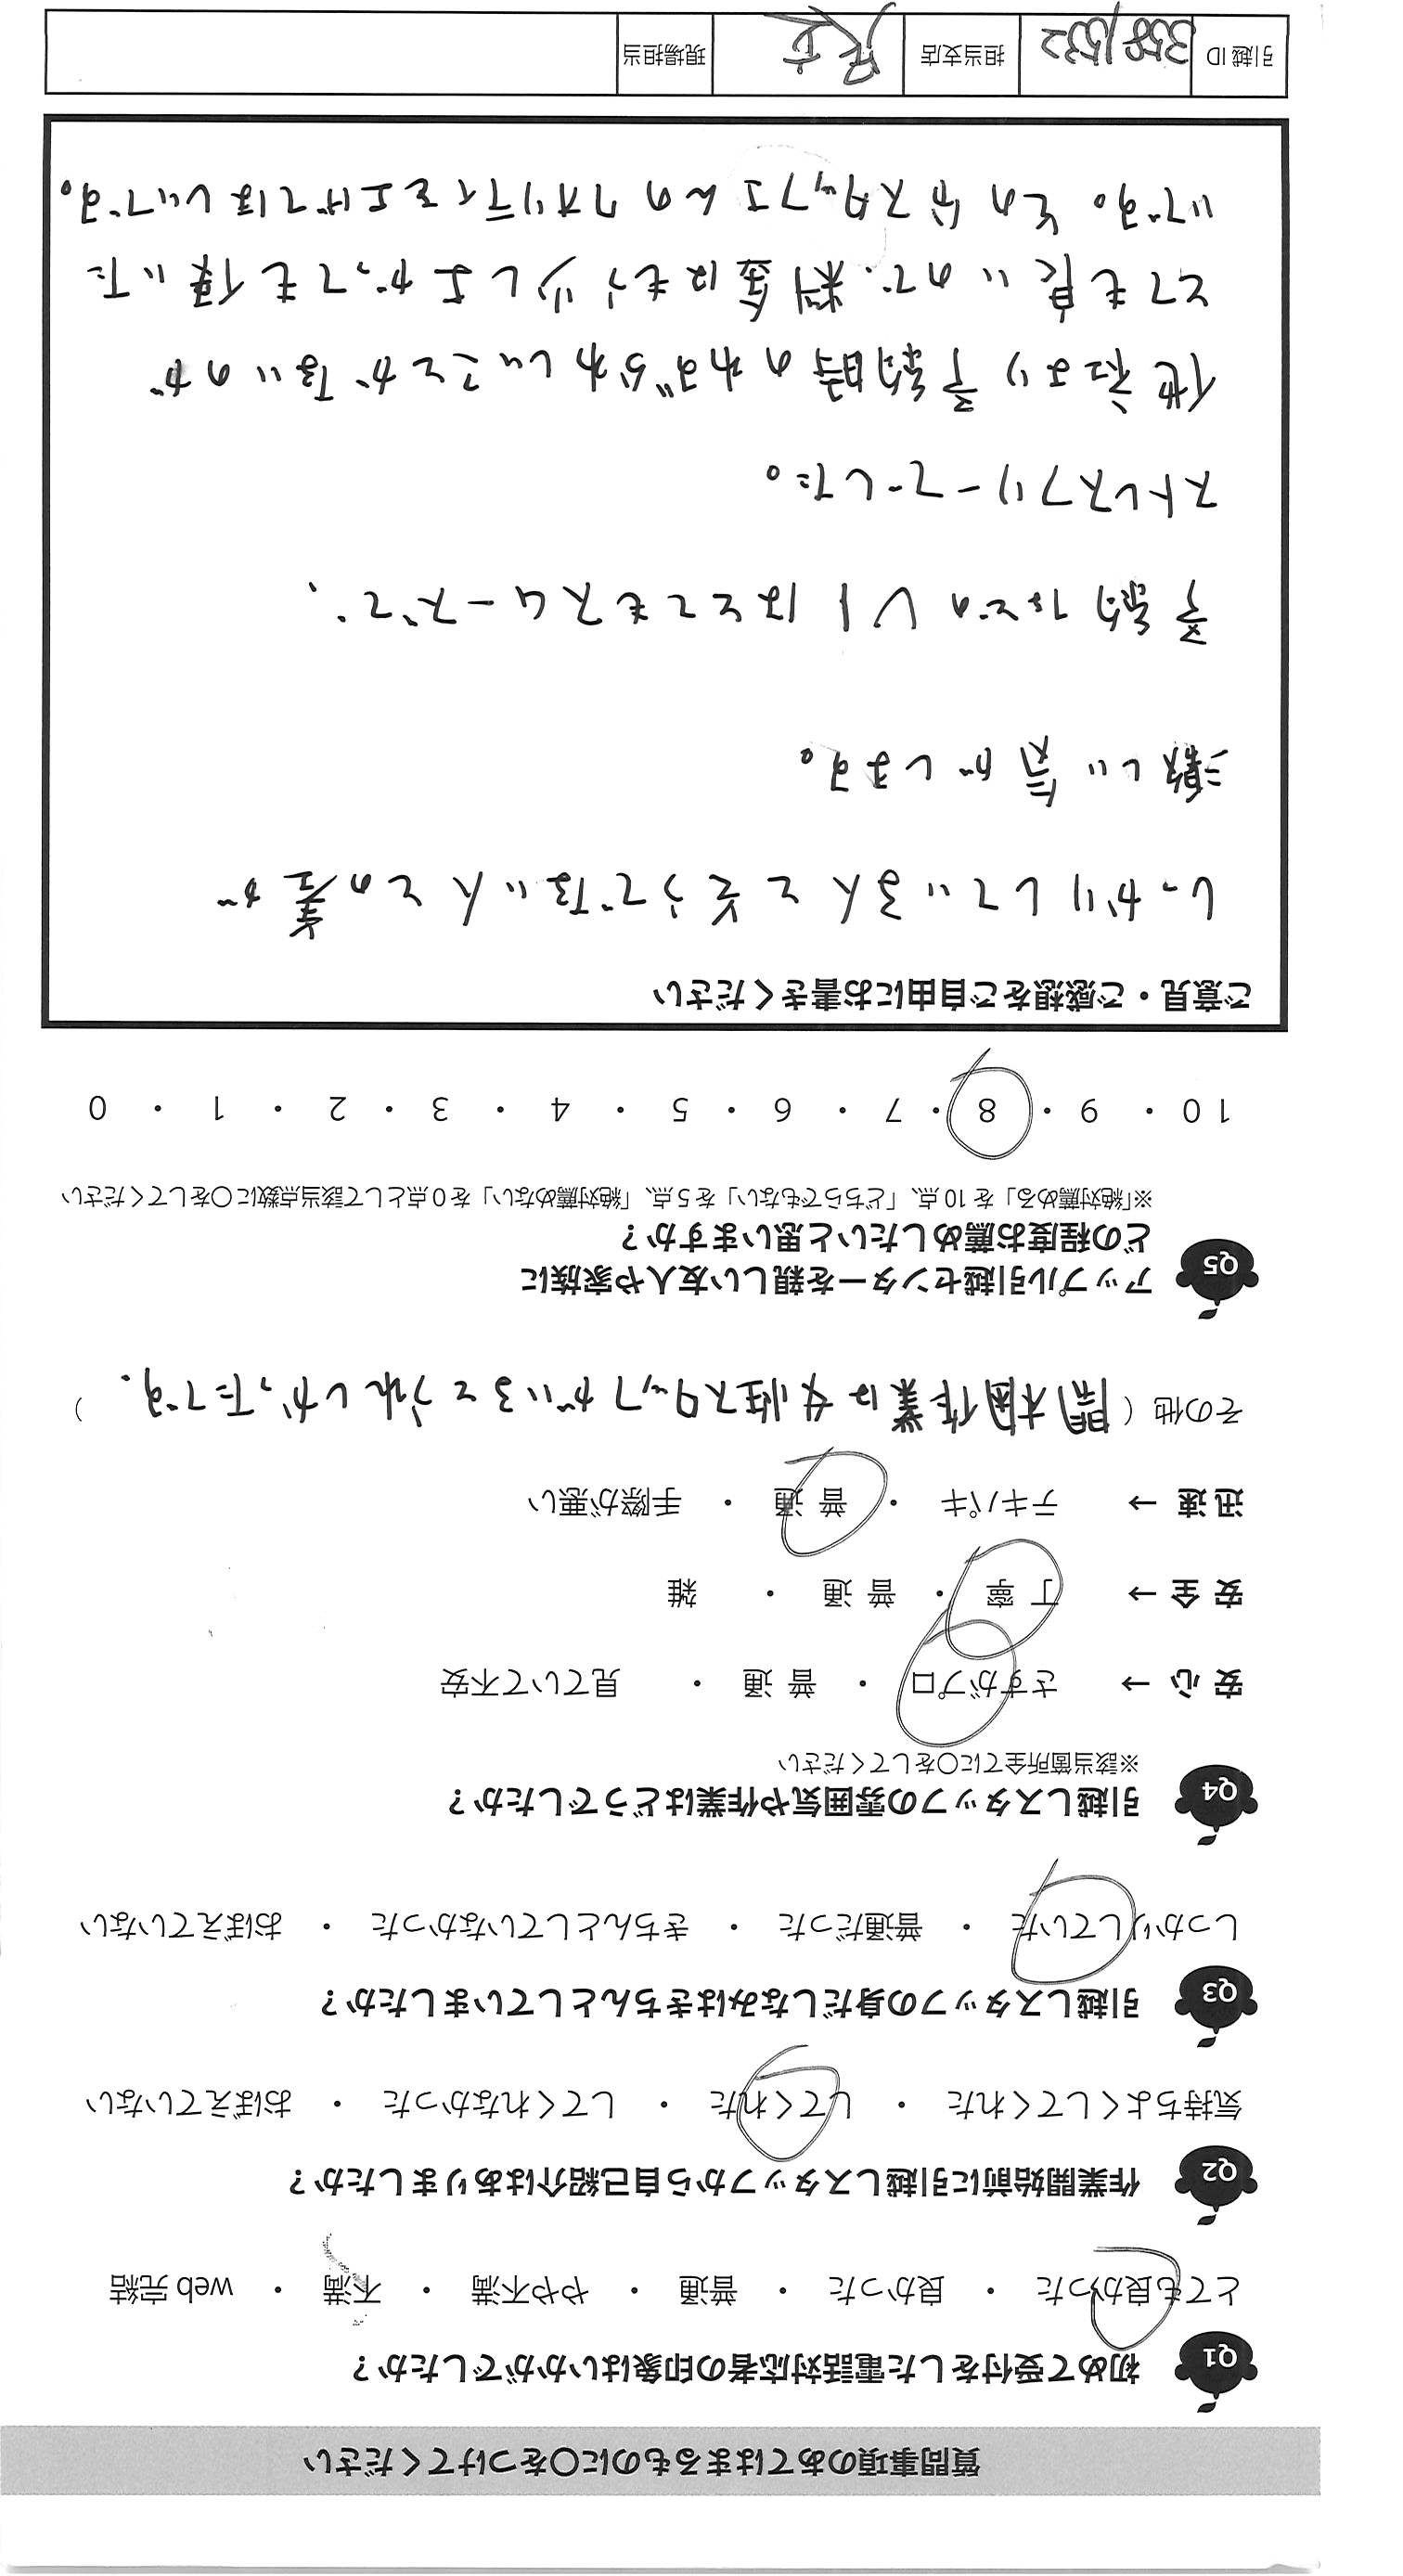 質問事項のあてはまるものに○をつけてください
Q1 初めて受付をした電話対応者の印象はいかがでしたか？
とても良かった ・ 良かった ・ 普通 ・ やや不満 ・ 不満 ・ web 完結
Q2 作業開始前に引越しスタッフから自己紹介はありましたか？
気持ちよくしてくれた ・ してくれた ・ してくれなかった ・ おぼえていない
Q3 引越しスタッフの身だしなみはきちんとしていましたか？
しっかりしていた ・ 普通だった ・ きちんとしていなかった ・ おぼえていない
Q4 引越しスタッフの雰囲気や作業はどうでしたか？
※該当箇所全てに○をしてください
安 心 → さすがプロ ・ 普 通 ・ 見ていて不安
安 全 → 丁 寧 ・ 普 通 ・ 雑
迅 速 → テキパキ ・ 普 通 ・ 手際が悪い
その他（ 開梱作業は女性スタッフがいるとうれしかったです. ）
Q5 アップル引越センターを親しい友人や家族に
どの程度お薦めしたいと思いますか？
※「絶対薦める」を 10 点、「どちらでもない」を 5 点、「絶対薦めない」を 0 点として該当点数に○をしてください
10 ・ 9 ・ 8 ・ 7 ・ 6 ・ 5 ・ 4 ・ 3 ・ 2 ・ 1 ・ 0
ご意見・ご感想をご自由にお書きください
しっかりしている人とそうでない人との差が
激しい気がします。
予約などのUIはとてもスムーズで、
ストレスフリーでした。
他社より予約時のわずらわしいことがないのが
とても良いので、料金はもう少し上がっても良いた
いです。その分スタッフさんのクオリティを上げてほしいです。
引越 ID 担当支店 現場担当